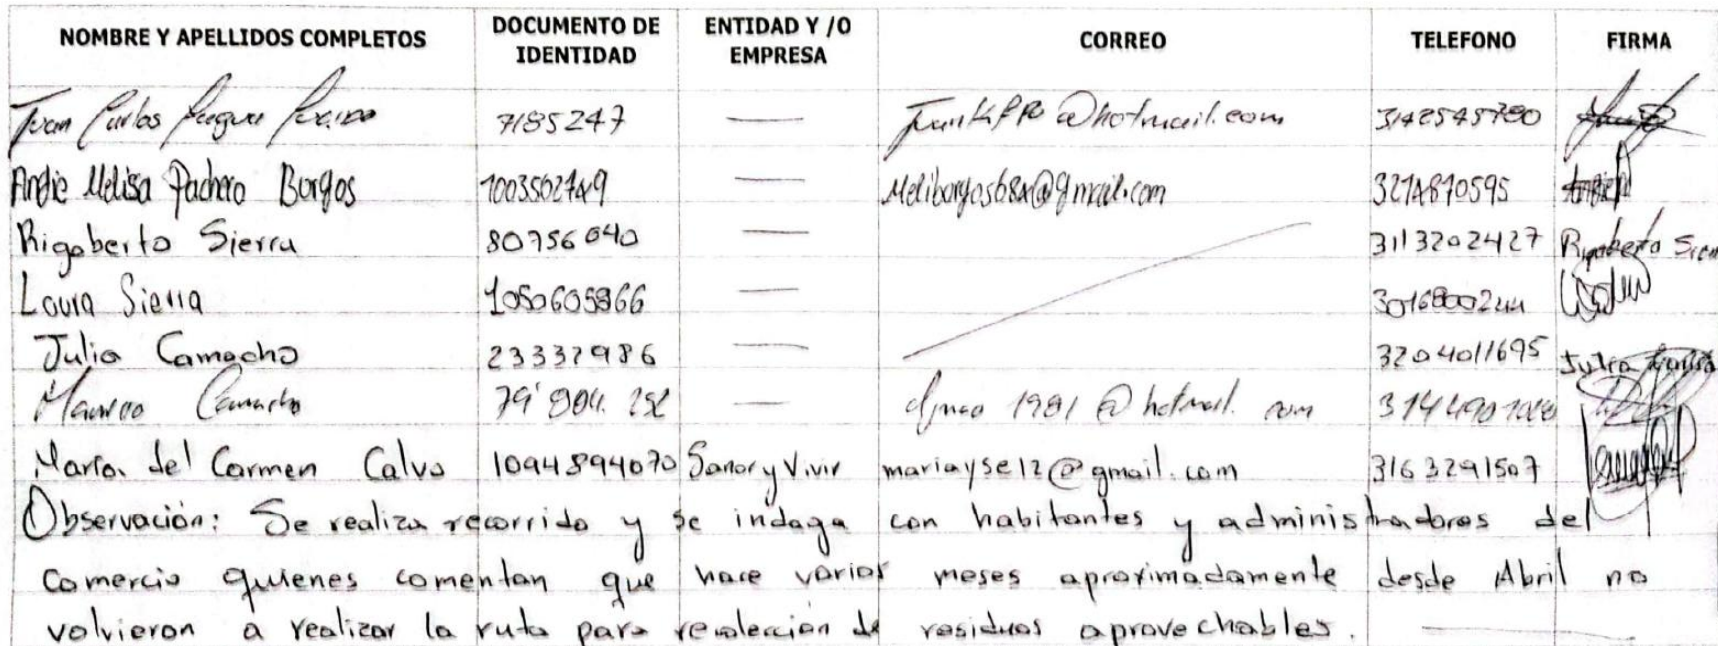 NOMBRE Y APELLIDOS COMPLETOS DOCUMENTO DE IDENTIDAD ENTIDAD Y /O EMPRESA CORREO TELEFONO FIRMA
Juan Carlos 7185247 — @hotmail.com
Angie Melisa Pacheco Borgos — @gmail.com 3214870595
Rigoberto Sierra 80756040 — 3113202427 Rigoberto
Laura Sierra —
Julia Camacho 23332986 — 3204011695 Julia
Camacho — 1981@hotmail.com
Maria del Carmen Calvo 1094894070 Sanar y Vivir mariayse12@gmail.com 3163291507
Observación: Se realiza recorrido y se indaga con habitantes y administradores del
comercio quienes comentan que hace varios meses aproximadamente desde Abril no
volvieron a realizar la ruta para recolección de residuos aprovechables.